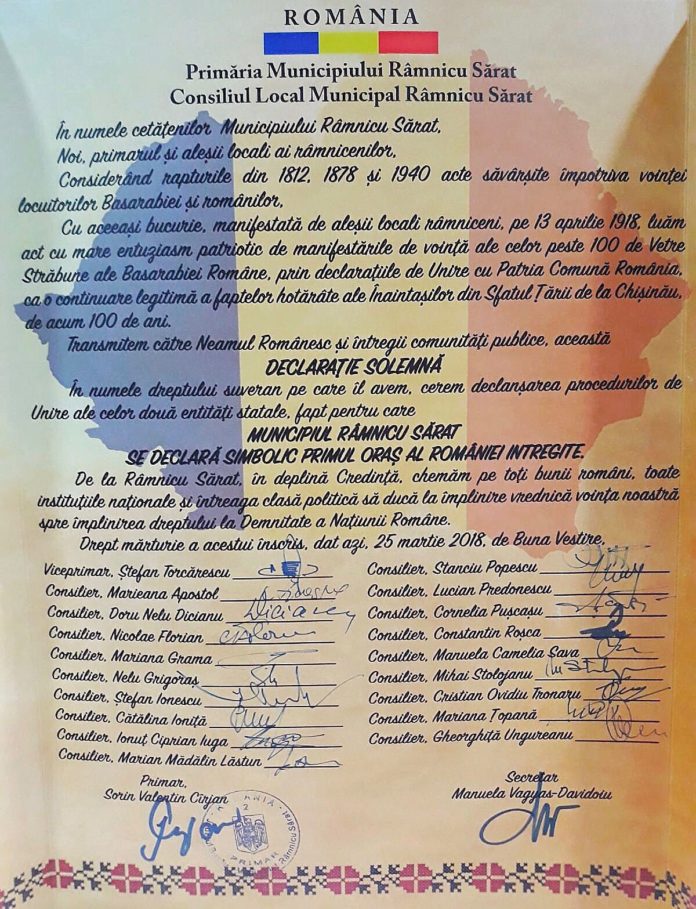 ROMÂNIA
Primăria Municipiului Râmnicu Sărat
Consiliul Local Municipal Râmnicu Sărat
În numele cetățenilor Municipiului Râmnicu Sărat,
Noi, primarul și aleșii locali ai râmnicenilor,
Considerând rapturile din 1812, 1878 și 1940 acte săvârșite împotriva voinței
locuitorilor Basarabiei și românilor,
Cu aceeași bucurie, manifestată de aleșii locali râmniceni, pe 13 aprilie 1918, luăm
act cu mare entuziasm patriotic de manifestările de voință ale celor peste 100 de Vetre
Străbune ale Basarabiei Române, prin declarațiile de Unire cu Patria Comună România,
ca o continuare legitimă a faptelor hotărâte ale Înaintașilor din Sfatul Țării de la Chișinău,
de acum 100 de ani.
Transmitem către Neamul Românesc și întregii comunități publice, această
DECLARAȚIE SOLEMNĂ
În numele dreptului suveran pe care îl avem, cerem declanșarea procedurilor de
Unire ale celor două entități statale, fapt pentru care
MUNICIPIUL RÂMNICU SĂRAT
SE DECLARĂ SIMBOLIC PRIMUL ORAȘ AL ROMÂNIEI INTREGITE.
De la Râmnicu Sărat, în deplină Credință, chemăm pe toți bunii români, toate
instituțiile naționale și întreaga clasă politică să ducă la împlinire vrednică voința noastră
spre împlinirea dreptului la Demnitate a Națiunii Române.
Drept mărturie a acestui înscris, dat azi, 25 martie 2018, de Buna Vestire,
Viceprimar, Ștefan Torcărescu
Consilier, Marieana Apostol
Consilier, Doru Nelu Dicianu
Consilier, Nicolae Florian
Consilier, Mariana Grama
Consilier, Nelu Grigoraș
Consilier, Ștefan Ionescu
Consilier, Cătălina Ioniță
Consilier, Ionuț Ciprian Iuga
Consilier, Marian Mădălin Lăstun
Consilier, Stanciu Popescu
Consilier, Lucian Predonescu
Consilier, Cornelia Pușcașu
Consilier, Constantin Roșca
Consilier, Manuela Camelia Sava
Consilier, Mihai Stolojanu
Consilier, Cristian Ovidiu Tronaru
Consilier, Mariana Topană
Consilier, Gheorghiță Ungureanu
Primar,
Sorin Valentin Cîrjan
Secretar
Manuela Vagyas-Davidoiu
PRIMAR
Râmnicu Sărat